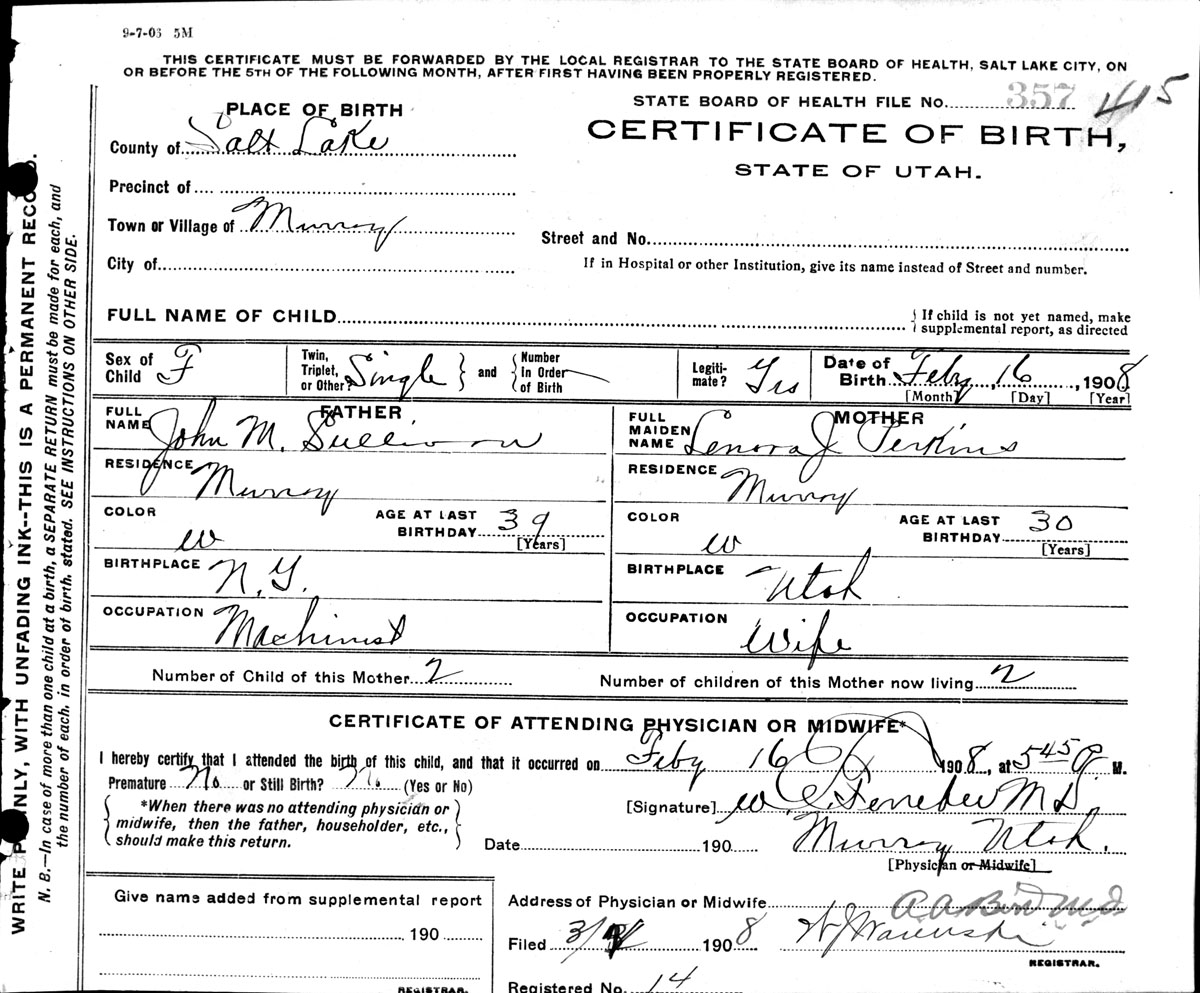 9-7-06 5M
THIS CERTIFICATE MUST BE FORWARDED BY THE LOCAL REGISTRAR TO THE STATE BOARD OF HEALTH, SALT LAKE CITY, ON
OR BEFORE THE 5TH OF THE FOLLOWING MONTH, AFTER FIRST HAVING BEEN PROPERLY REGISTERED.
STATE BOARD OF HEALTH FILE No. 357 415
CERTIFICATE OF BIRTH,
STATE OF UTAH.
PLACE OF BIRTH
County of Salt Lake
Precinct of
Town or Village of Murray
Street and No.
City of
If in Hospital or other Institution, give its name instead of Street and number.
FULL NAME OF CHILD
{ If child is not yet named, make
supplemental report, as directed
Sex of Child F
Twin, Triplet, or Other? Single } and { Number In Order of Birth
Legiti-mate? Yes
Date of Birth Feby, 16, 1908
[Month] [Day] [Year]
FATHER
FULL NAME John M. Sullivan
RESIDENCE Murray
COLOR w
AGE AT LAST BIRTHDAY 39
[Years]
BIRTHPLACE N.Y.
OCCUPATION Machinist
MOTHER
FULL MAIDEN NAME Lenora J Perkins
RESIDENCE Murray
COLOR w
AGE AT LAST BIRTHDAY 30
[Years]
BIRTHPLACE Utah
OCCUPATION Wife
Number of Child of this Mother 2
Number of children of this Mother now living 2
CERTIFICATE OF ATTENDING PHYSICIAN OR MIDWIFE*
I hereby certify that I attended the birth of this child, and that it occurred on Feby 16 1908, at 5 45 P. M.
Premature No or Still Birth? No (Yes or No)
{ *When there was no attending physician or
midwife, then the father, householder, etc.,
should make this return. }
[Signature] W. C. M D.
Date 190
Murray Utah.
[Physician or Midwife]
Give name added from supplemental report
190
REGISTRAR.
Address of Physician or Midwife
A A Bird M.D
Filed 3/ 1908
REGISTRAR.
Registered No. 14
WRITE PLAINLY, WITH UNFADING INK--THIS IS A PERMANENT RECORD.
N. B.—In case of more than one child at a birth, a SEPARATE RETURN must be made for each, and
the number of each, in order of birth, stated. SEE INSTRUCTIONS ON OTHER SIDE.